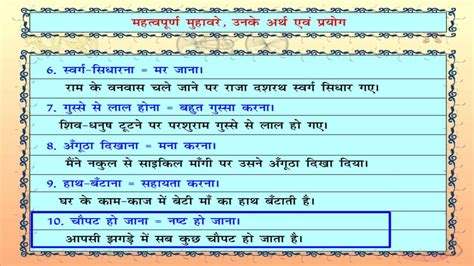 महत्वपूर्ण मुहावरे, उनके अर्थ एवं प्रयोग
6. स्वर्ग-सिधारना = मर जाना।
राम के वनवास चले जाने पर राजा दशरथ स्वर्ग सिधार गए।
7. गुस्से से लाल होना = बहुत गुस्सा करना।
शिव-धनुष टूटने पर परशुराम गुस्से से लाल हो गए।
8. अँगूठा दिखाना = मना करना।
मैंने नकुल से साइकिल माँगी पर उसने अँगूठा दिखा दिया।
9. हाथ-बँटाना = सहायता करना।
घर के काम-काज में बेटी माँ का हाथ बँटाती है।
10. चौपट हो जाना = नष्ट हो जाना।
आपसी झगड़े में सब कुछ चौपट हो जाता है।